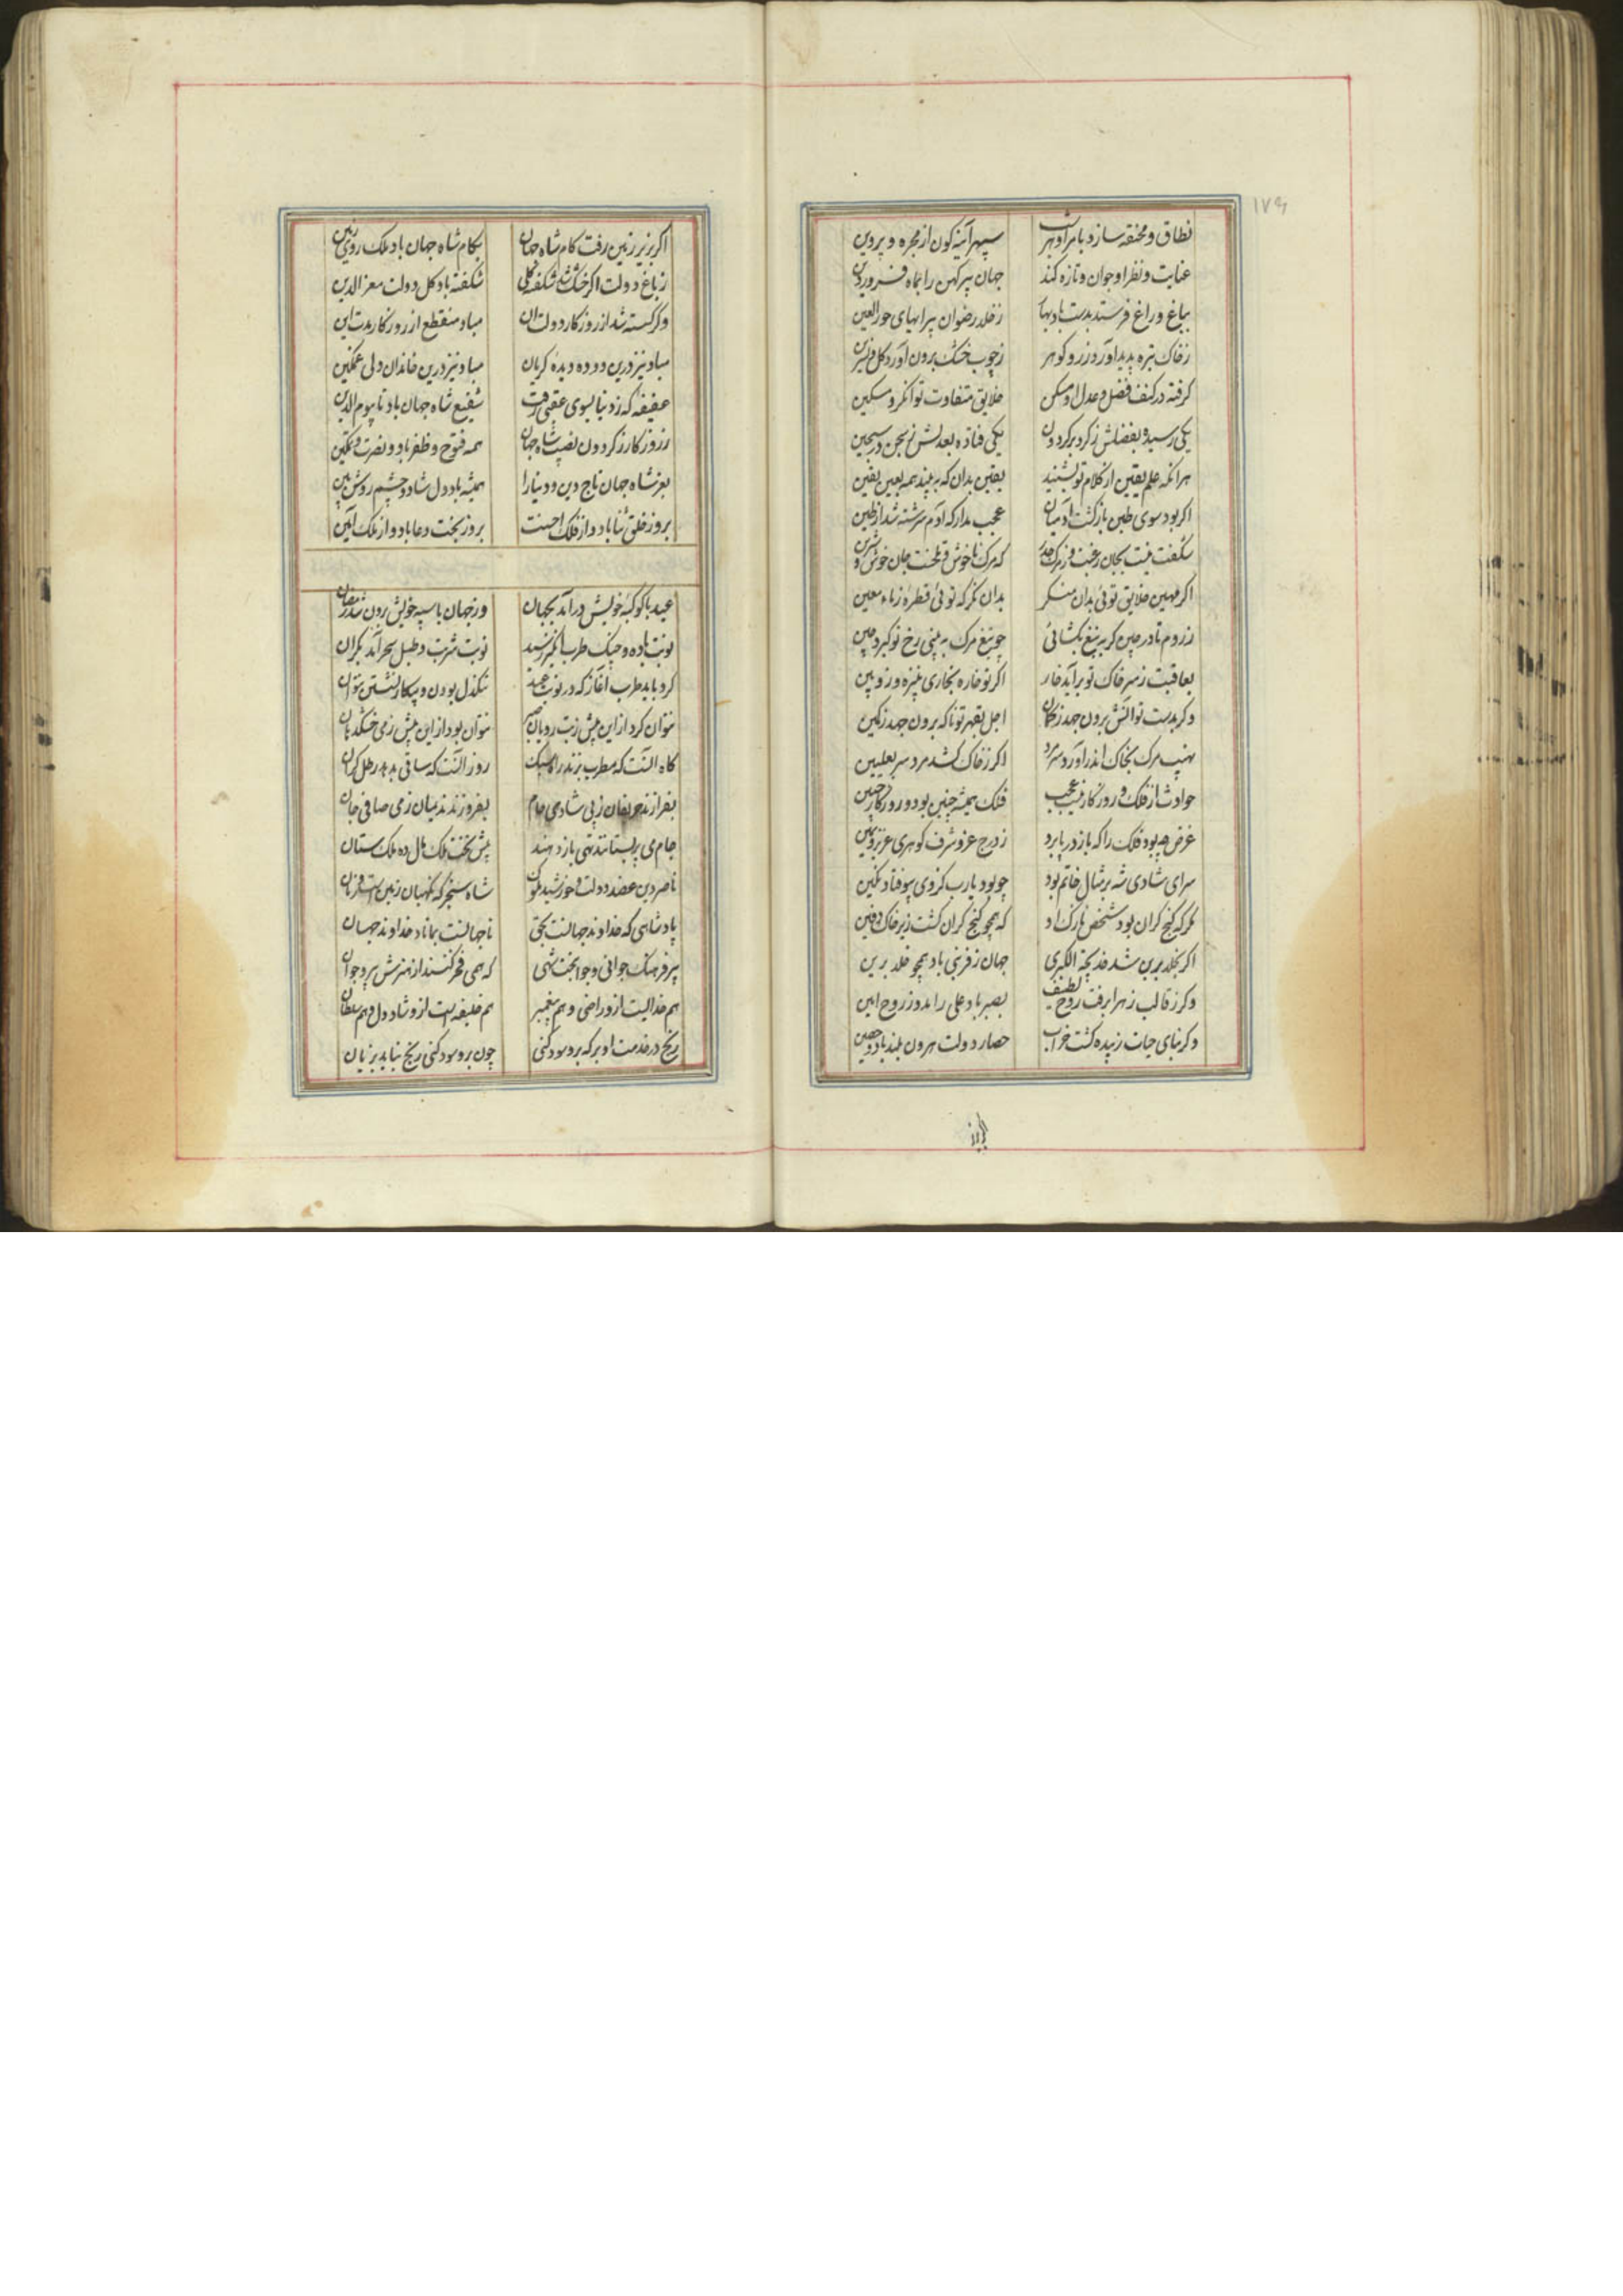 ۱۷۶
نطاق و مخنقه سازد بامر او هر شب سپهر آینه کون از مجره و پروین
عنایت و نظر او جوان و تازه کند جهان پیر کهن را بماه فروردین
بباغ و راغ فرستد بدست باد بهار ز خلد رضوان پیرایهای حورالعین
ز خاک تیره پدید آورد زر و کوهر ز چوب خشک برون آورد کل و نسرین
کرفته در کنف فضل و عدل او مسکن خلایق متفاوت توانکر و مسکین
یکی رسیده بفضلش ز کرد بر کردون یکی فتاده بعدلش ز سجن در سجین
هر آنکه علم یقین از کلام تو بشنید یقین بدان که به بیند همه بعین یقین
اکر بود سوی طین بازکشت آدمیان عجب مدار که آدم سرشته شد از طین
شکفت نیست بجان رغبت و ز مرک حذر که مرک ناخوش و تلخست جان خوش و شیرین
اکر مهین خلایق توئی بدان منکر بدان نکر که توئی قطرهٔ ز ماء معین
ز روم تا در چین کر به تیغ بکشائی چو تیغ مرک به بینی رخ تو کیرد چین
بعاقبت ز سر خاک تو برآید خار اکر تو خاره بخاری به نیزه و زوبین
وکر بدست تو آتش برون جهد ز کمان اجل بقهر تو ناکه برون جهد ز کمین
نهیب مرک بخاک اندر آورد سر مرد اکر ز خاک کشد مرد سر بعلیین
حوادث از فلک و روزکار نیست عجب فلک همیشه چنین بود و روزکار چنین
غرض چه بود فلک را که باز در یا برد ز درج عز و شرف کوهری عزیز و ثمین
سرای شادی شه بر مثال خاتم بود چو بود یارب کز وی بیوفتاد نکین
مکر که کنج کران بود شخص نازک او که همچو کنج کران کشت زیر خاک دفین
اکر بخلد برین شد خدیجة الکبری جهان ز فر نبی باد همچو خلد برین
وکر ز قالب زهرا برفت روح لطیف بصبر باد علی را مدد ز روح امین
وکر بنای حیات زبیده کشت خراب حصار دولت هرون بلند باد و حصین
اکر بزیر زمین رفت کام شاه جهان بکام شاه جهان باد ملک روی زمین
ز باغ دولت اکر خشک شد شکفته کلی شکفته باد کل دولت معزالدین
وکر کسسته شد از روزکار دولت آن مباد منقطع از روزکار مدت این
مباد نیز درین دوده دیده کریان مباد نیز درین خاندان دلی غمکین
عفیفه که ز دنیا بسوی عقبی رفت شفیع شاه جهان باد تا بیوم الدین
ز روزکار و ز کردون نصیب شاه جهان همه فتوح و ظفر باد و نصرت و تمکین
بعز شاه جهان تاج دین و دنیا را همیشه باد دل شاد و چشم روشن بین
بروز خلق ثنا باد و از فلک احسنت بروز بخت دعا باد و از ملک آمین
عید با کوکبهٔ خویش درآمد بجهان وز جهان با سپه خویش برون شد رمضان
نوبت باده و چنک طرب انکیز رسید نوبت شربت و طبل سحر آمد بکران
کرد باید طرب آغاز که در نوبت عید تنکدل بودن و بیکار نشستن نتوان
نتوان کرد از این بیش زبت روبان صبر نتوان بود از این بیش ز می خشک دهان
کاه آنست که مطرب بزند راه سبک روز آنست که ساقی بدهد رطل کران
بفرازند حریفان ز پی شادی جام بفروزند ندیمان ز می صافی جان
جام می پر بستانند تهی باز دهند پیش تخت ملک مال ده ملک ستان
ناصر دین عضد دولت و خورشید ملوک شاه سنجر که نکهبان زمین است و زمان
پادشاهی که خداوند جهانست بحق تا جهانست بماناد خداوند جهان
پیر فرهنک جوانی و جوانبخت شهی که همی فخر کنند از هنرش پیر و جوان
هم خدایست ازو راضی و هم پیغمبر هم خلیفه است ازو شاد دل و هم سلطان
رنج در خدمت او بر که برو سود کنی چون برو سود کنی رنج نیاید بزیان